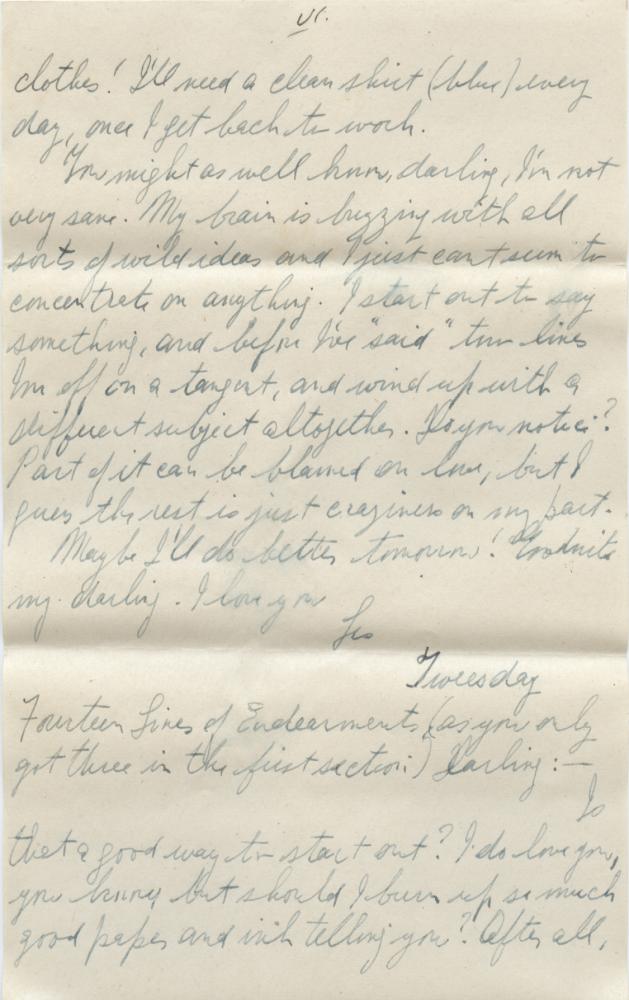 VI.
clothes! I'll need a clean shirt (blue) every
day, once I get back to work.
You might as well know, darling, I'm not
very sane. My brain is buzzing with all
sorts of wild ideas and I just can't seem to
concentrate on anything. I start out to say
something, and before I've "said" two lines
I'm off on a tangent, and wind up with a
different subject altogether. Do you notice?
Part of it can be blamed on love, but I
guess the rest is just craziness on my part.
Maybe I'll do better tomorrow! Goodnite
my darling. I love you
Les
Tweesday
Fourteen Lines of Endearments (as you only
got three in the first section) Darling:—
Is
that a good way to start out? I do love you,
you know but should I burn up so much
good paper and ink telling you? After all,